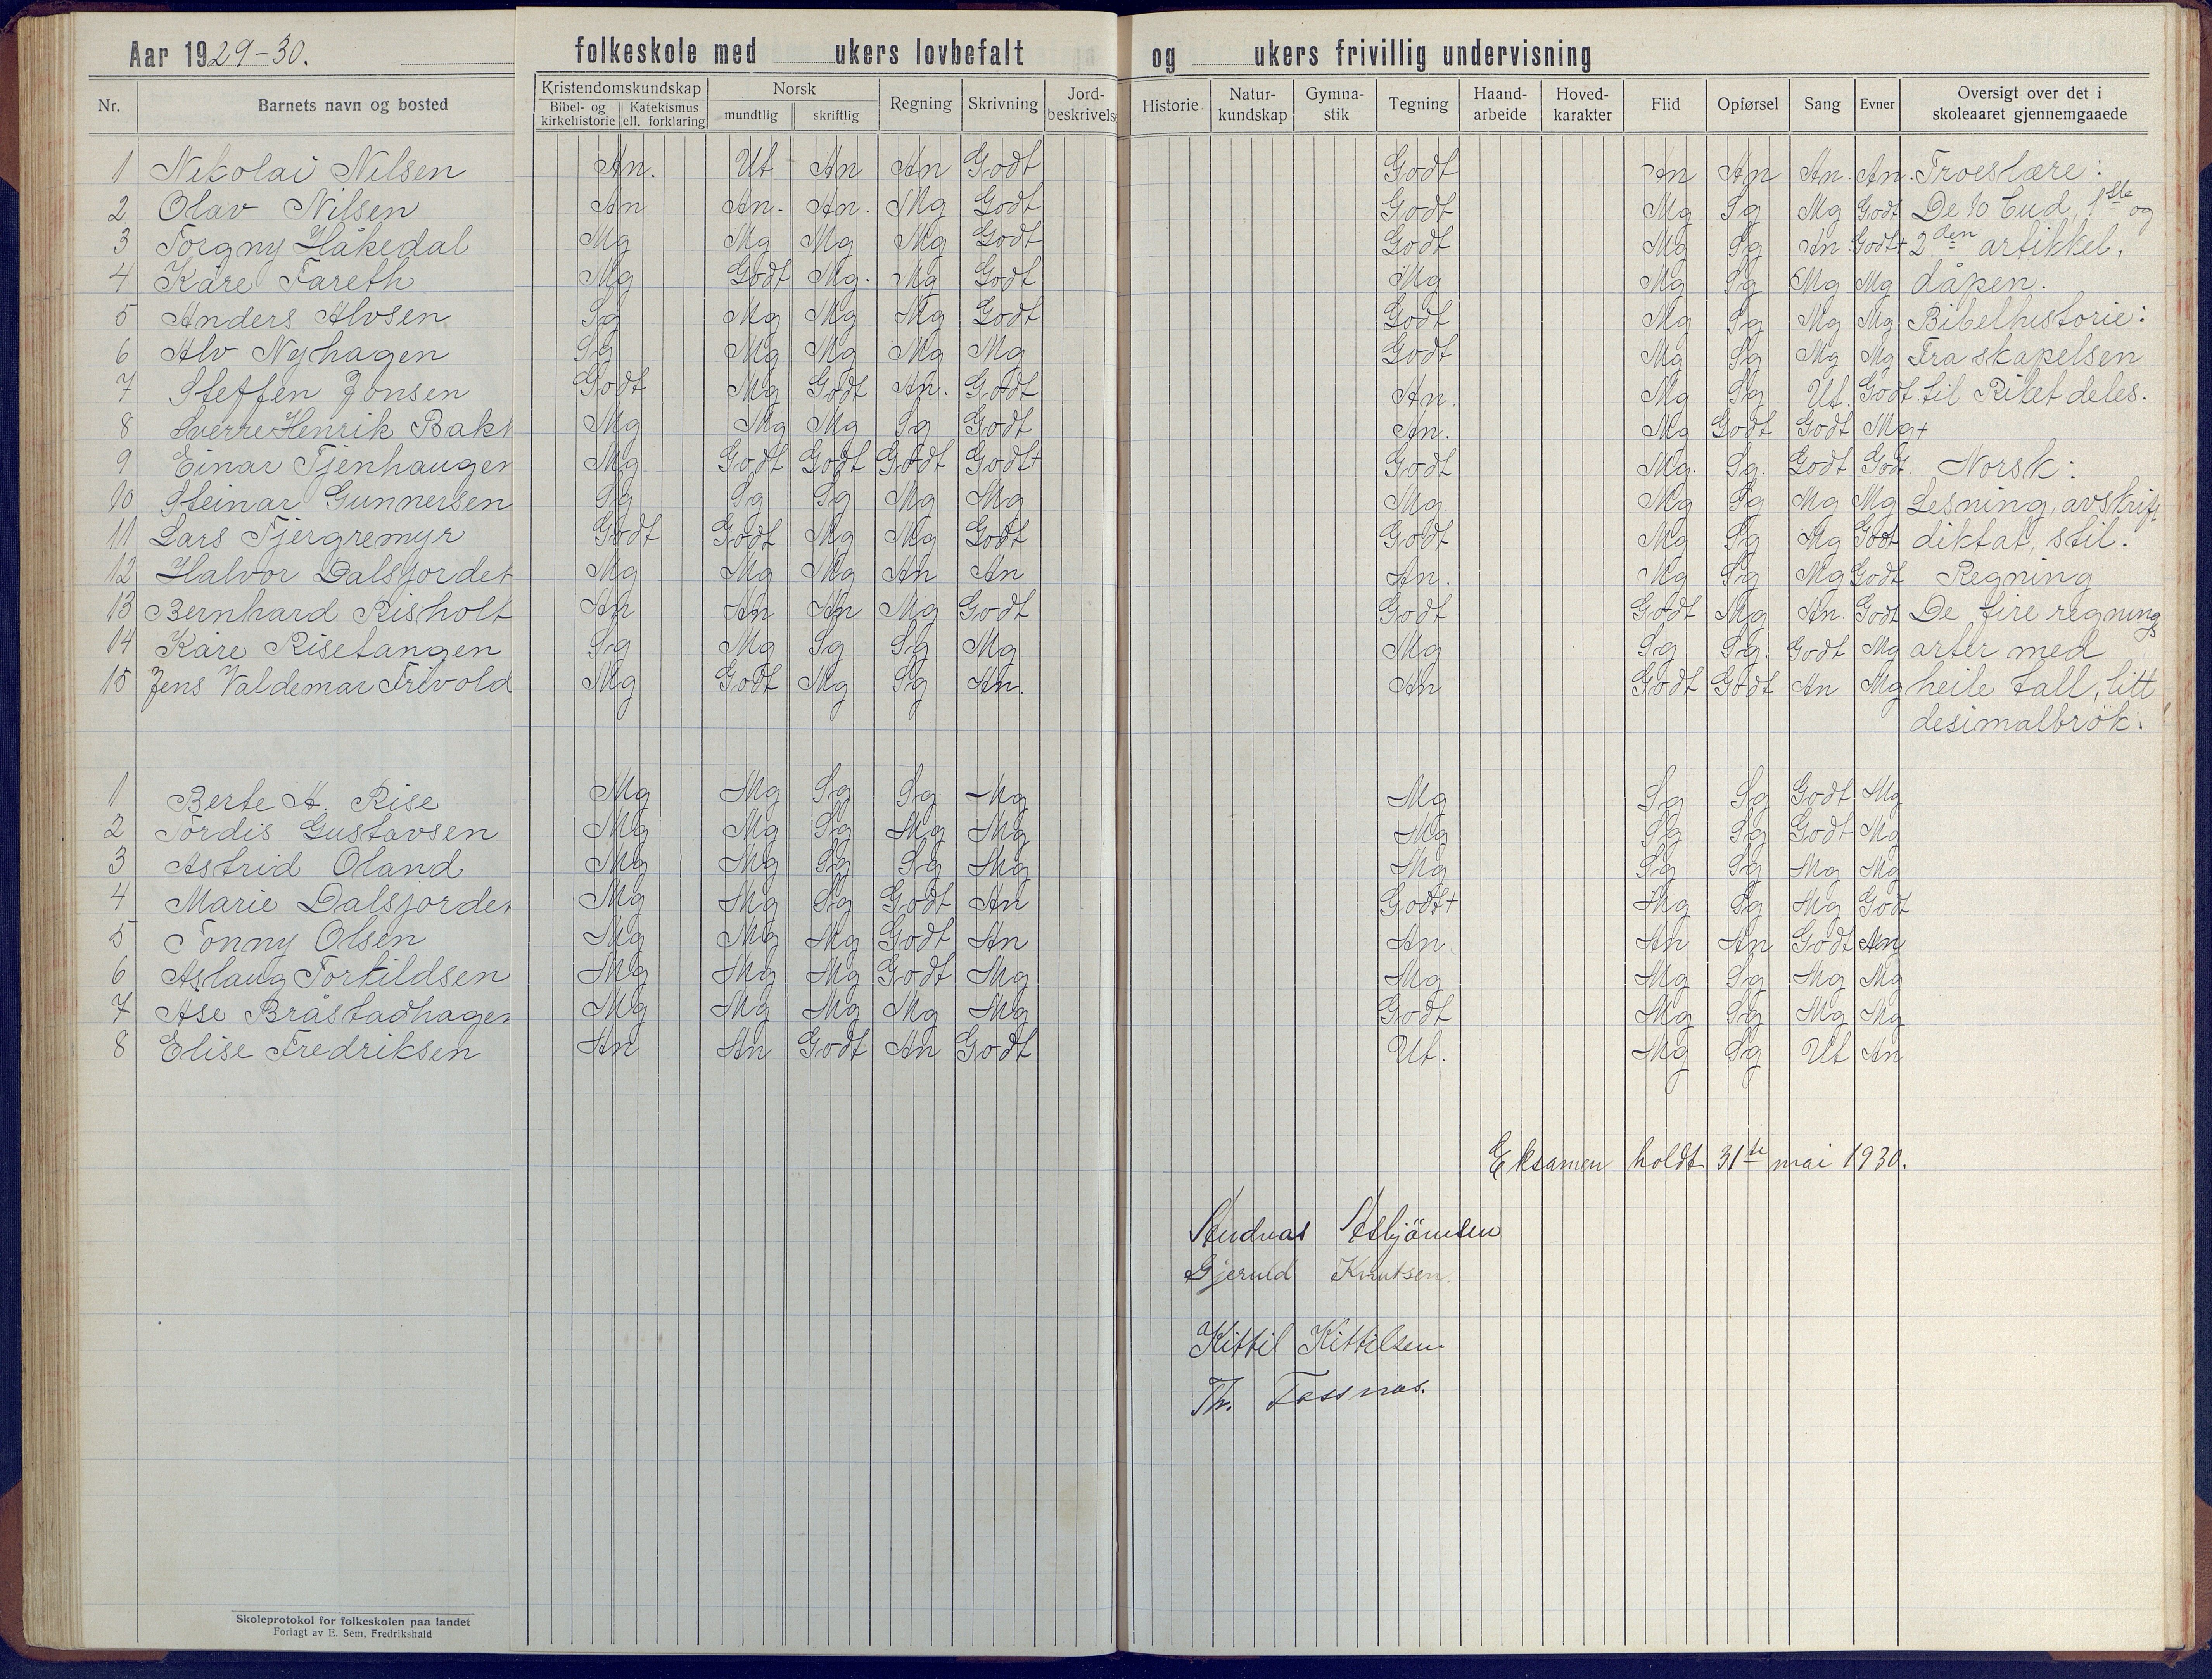 Aar 1929-30. folkeskole med ukers lovbefalt og ukers frivillig undervisning
Nr. Barnets navn og bosted Kristendomskundskap Bibel- og kirkehistorie Katekismus ell. forklaring Norsk mundtlig skriftlig Regning Skrivning Jord- beskrivels Historie Natur- kundskap Gymna- stik Tegning Haand- arbeide Hoved- karakter Flid Opførsel Sang Evner Oversigt over det i skoleaaret gjennemgaaede
1 Nikolai Nilsen An. Ut An An Godt Godt An An An. An. Troeslære:
2 Olav Nilsen An An. An. Mg Godt Godt Mg Sg Mg Godt De 10 bud, 1ste og
3 Torgny Håkedal Mg Mg Mg Mg Godt Godt Mg Sg An Godt+ 2den artikkel,
4 Kåre Fareth Mg Godt Mg. Mg Godt Mg Mg Sg Mg Mg dåpen.
5 Anders Alvsen Sg Mg Mg Mg Godt Godt Mg Sg Mg Mg Bibelhistorie:
6 Alv Nyhagen Sg Mg Mg Mg Mg Godt Mg Sg Mg Mg Fra skapelsen
7 Steffen Jonsen Godt Mg Godt An. Godt An. Mg Sg Ut. Godt. til Riket deles.
8 Sverre Henrik Bakk Mg Mg Mg Sg Godt An. Mg Godt Godt Mg+
9 Einar Tjenhaugen Mg Godt Godt Godt Godt+ Godt Mg. Sg. Godt Godt. Norsk:
10 Steinar Gunnersen Sg Sg Sg Mg Mg Mg. Mg Sg Mg Mg Lesning, avskrift
11 Lars Tjergremyr Godt Godt Mg Mg Godt Godt Mg Sg Mg Godt diktat, stil.
12 Halvor Dalsjordet Mg Mg Mg An An An. Mg Sg Mg Godt Regning
13 Bernhard Risholt An An An Mg Godt Godt Godt Mg An. Godt De fire regnings
14 Kåre Risetangen Sg Mg Sg Sg Mg Mg Sg Sg. Godt Mg arter med
15 Jens Valdemar Frivold Mg Godt Mg Sg An. An Godt Godt An Mg heile tall, litt
desimalbrök.
1 Berte A. Rise Mg Mg Sg Sg Mg Mg Sg Sg Godt Mg
2 Tordis Gustavsen Mg Mg Sg Mg Mg Mg Sg Sg Godt Mg
3 Astrid Oland Mg Mg Sg Sg Mg Mg Sg Sg Mg Mg
4 Marie Dalsjordet Mg Mg Sg Godt An Godt+ Mg Sg Mg Godt
5 Tonny Olsen Mg Mg Mg Godt An An An An Godt An
6 Aslaug Torkildsen Mg Mg Mg Godt Mg Mg Mg Sg Mg Mg
7 Åse Bråstadhagen Mg Mg Mg Mg Mg Godt Mg Sg Mg Mg
8 Elise Fredriksen An An Godt An Godt Ut. Mg Sg Ut An
Eksamen holdt 31te mai 1930.
Andreas Asbjörnsen
Gjeruld Knutsen.
Kittil Kittilsen.
Th. Fossnes.
Skoleprotokol for folkeskolen paa landet
Forlagt av E. Sem, Fredrikshald